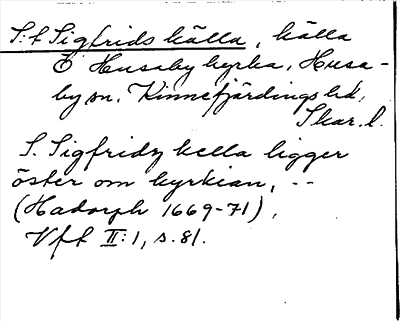 S:t Sigfrids källa, källa
Ö Husaby kyrka, Husa-
by sn. Kinnefjärdings hd,
Skar. l.
S. Sigfridz kella ligger
öster om kyrkian, --
(Hadorph 1669-71),
Vft II:1, s.81.